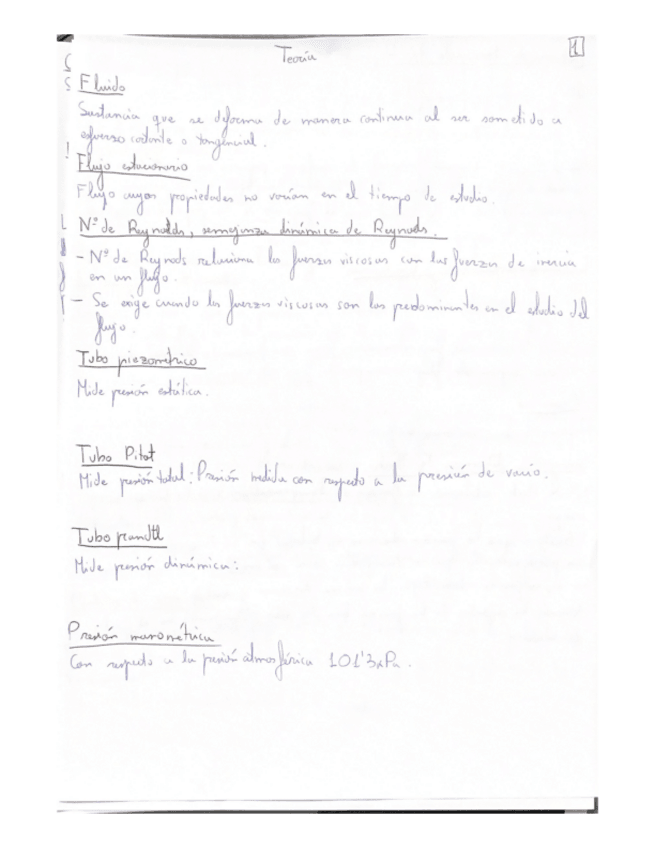 1
Teoría
Fluido
Sustancia que se deforma de manera continua al ser sometido a
esfuerzo cortante o tangencial.
Flujo estacionario
Flujo cuyas propiedades no varían en el tiempo de estudio.
Nº de Reynolds, semejanza dinámica de Reynods.
- Nº de Reynods relaciona las fuerzas viscosas con las fuerzas de inercia
en un flujo.
- Se exige cuando las fuerzas viscosas son las predominantes en el estudio del
flujo.
Tubo piezométrico
Mide presión estática.
Tubo Pitot
Mide presión total: Presión medida con respecto a la presión de vacío.
Tubo prandtl
Mide presión dinámica:
Presión manométrica
Con respecto a la presión atmosférica 101'3